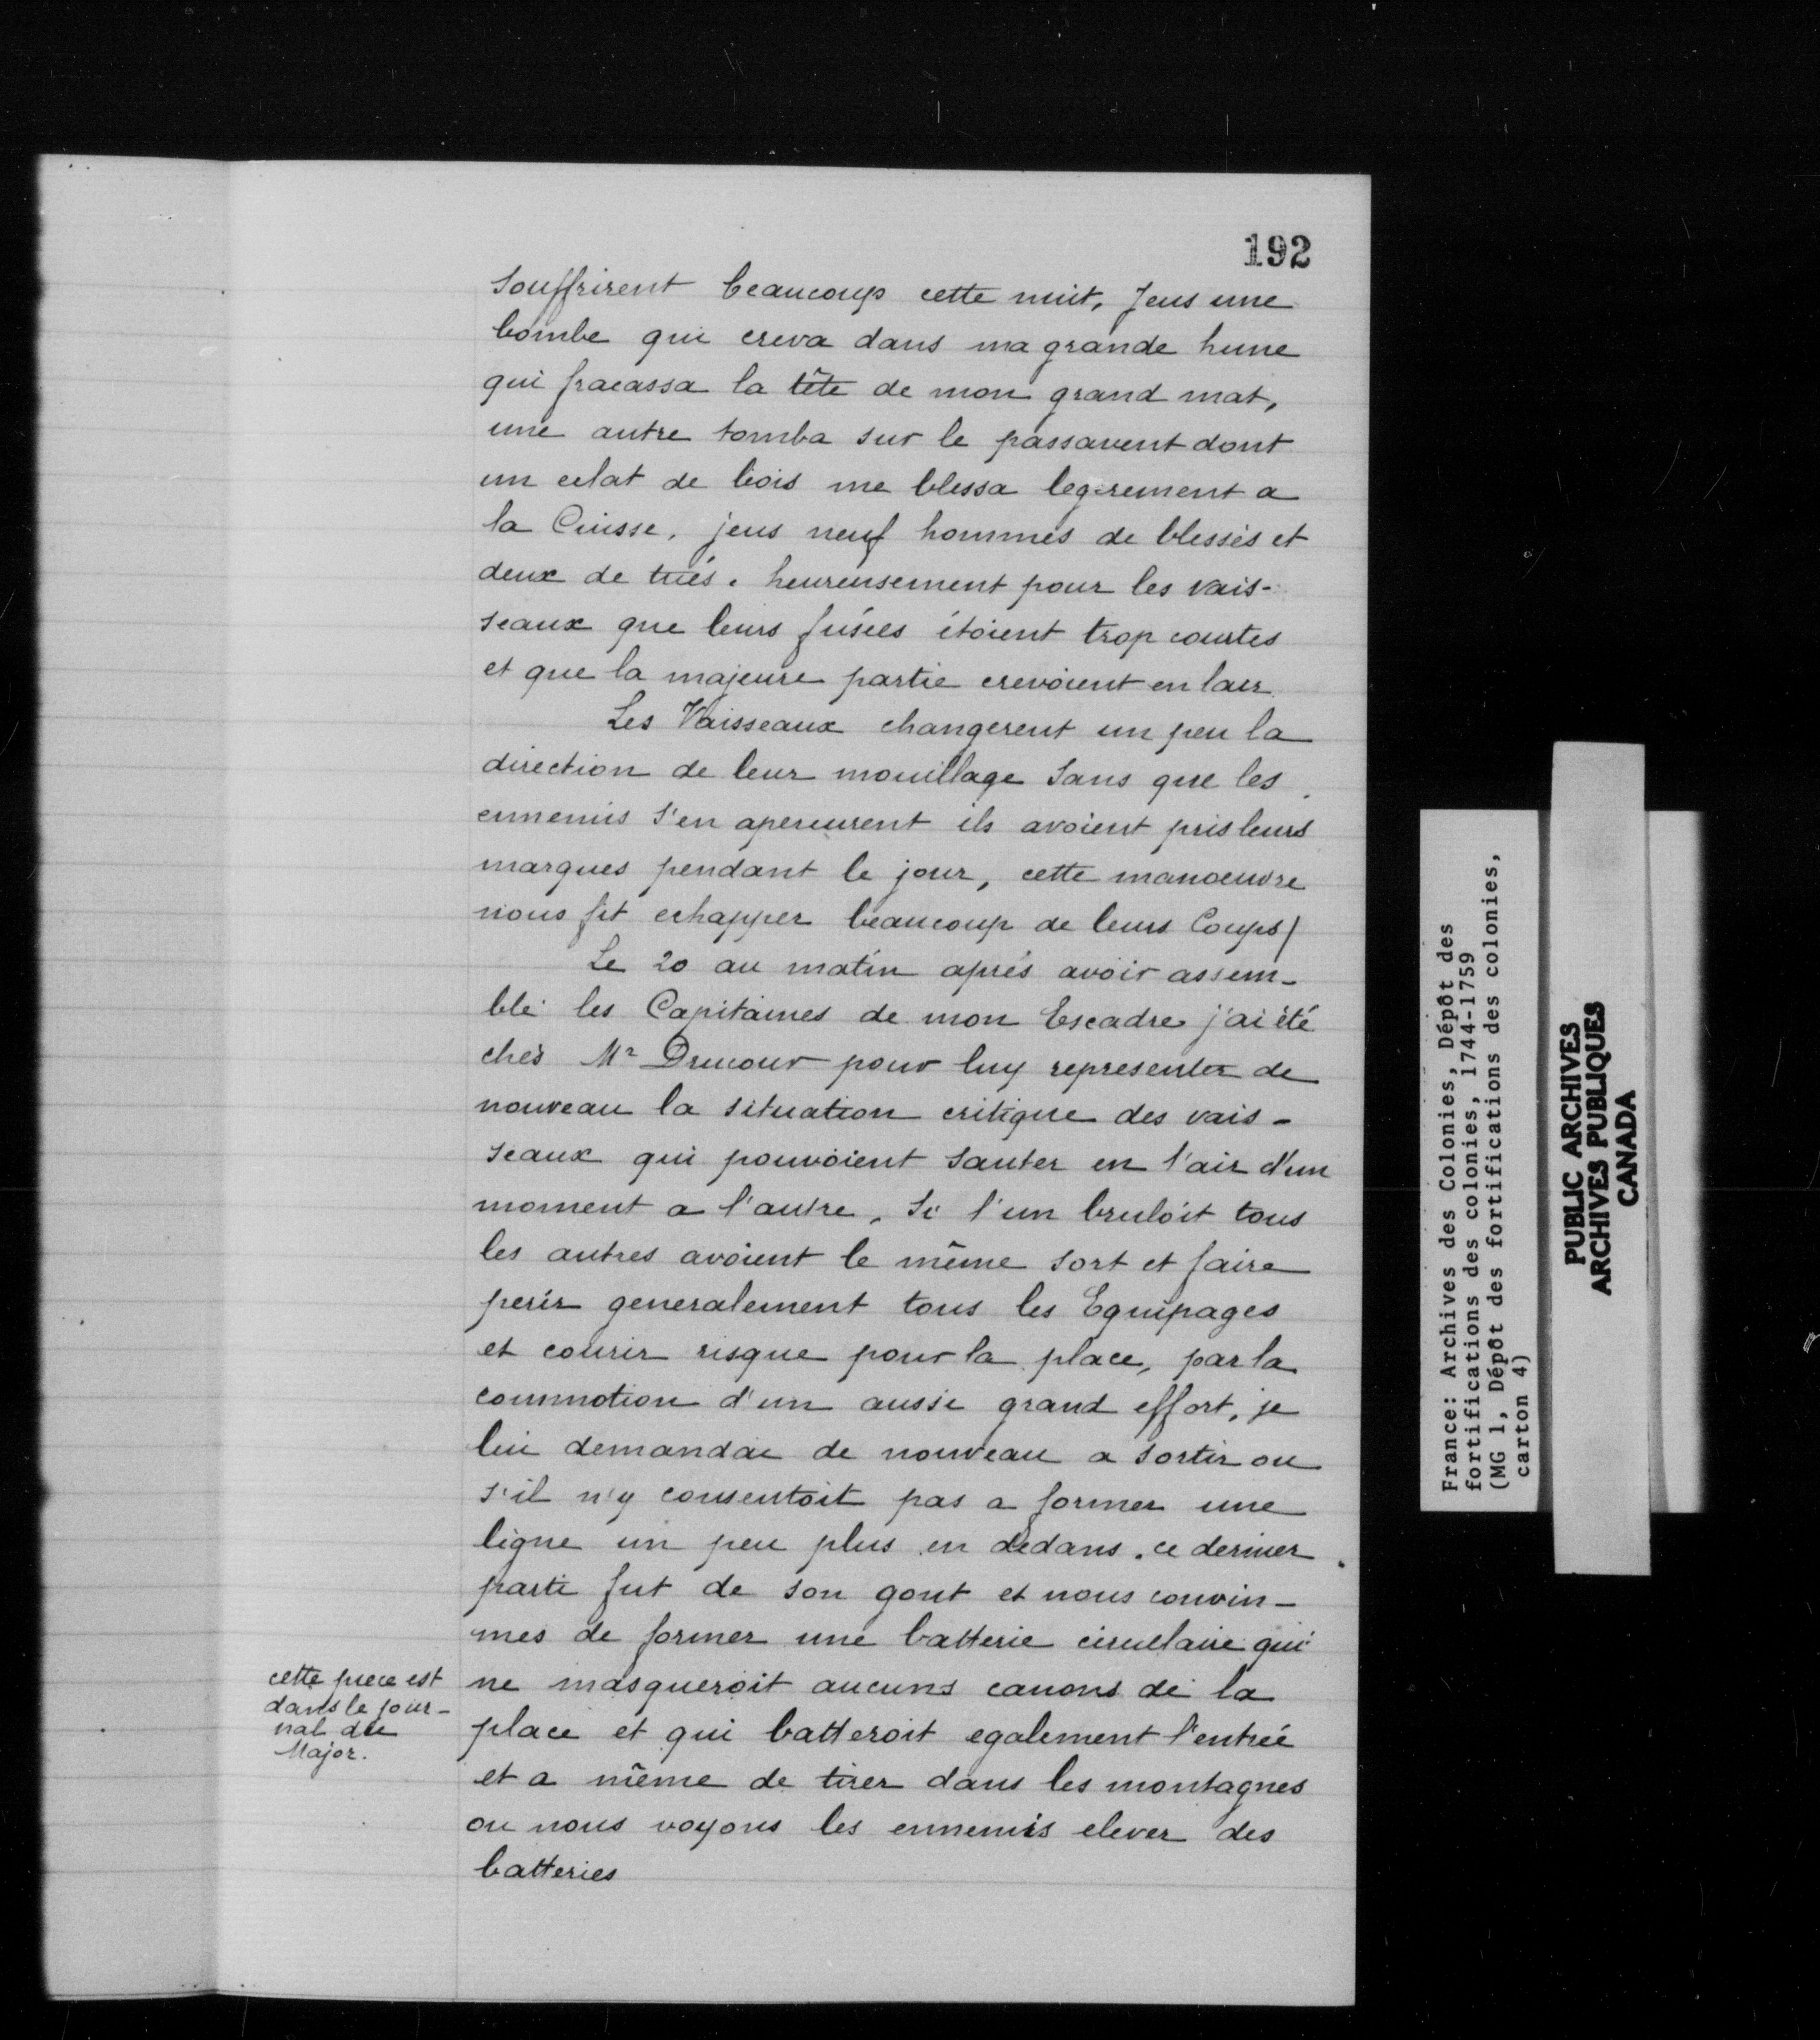 192
souffrirent beaucoup cette nuit, Jeus une
bombe qui creva dans ma grande hune
qui fracassa la tête de mon grand mat,
une autre tomba sur le passavent dont
un eclat de bois me blessa legerement a
la Cuisse, jeus neuf hommes de blessés et
deux de tués. heureusement pour les vais-
seaux que leurs fusées étoient trop courtes
et que la majeure partie crevoient en lair.
Les Vaisseaux changerent un peu la
direction de leur mouillage sans que les
ennemis s'en apereurent ils avoient pris leurs
marques pendant le jour, cette manoeuvre
nous fit echapper beaucoup de leurs Coups/
Le 20 au matin aprés avoir assem-
blé les Capitaines de mon Escadre j'ai été
chés Mr Drucour pour luy representer de
nouveau la situation critique des vais-
seaux qui pouvoient sauter en l'air d'un
moment a l'autre, si l'un bruloit tous
les autres avoient le même sort et faire
perir generalement tous les Equipages
et courir risque pour la place, par la
commotion d'un aussi grand effort, je
lui demandai de nouveau a sortir ou
s'il n'y consentoit pas a former une
ligne un peu plus en dedans. ce dernier
parti fut de son gout et nous convin-
mes de former une batterie circullaire qui
ne masqueroit aucuns canons de la
place et qui batteroit egalement l'entrée
et a même de tirer dans les montagnes
ou nous voyons les ennemis elever des
batteries
cette piece est
dans le jour-
nal du
Major.
France: Archives des Colonies, Dépôt des
fortifications des colonies, 1744-1759
(MG 1, Dépôt des fortifications des colonies,
carton 4)
PUBLIC ARCHIVES
ARCHIVES PUBLIQUES
CANADA